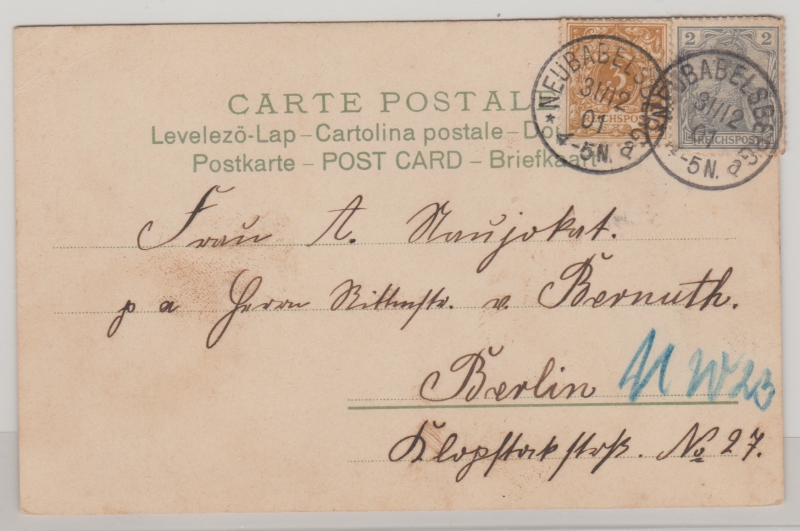 CARTE POSTAL
Levelezõ-Lap – Cartolina postale – Do
Postkarte – POST CARD – Briefkaa
3
REICHSPOST
2 2
REICHSPOST
* NEUBABELSBERG
31/12
01
4-5N. a
* NEUBABELSBERG
31/12
01
4-5N. a
Frau A. Naujokat.
p a Herrn Rittmstr. v. Bernuth.
Berlin NW 23
Klopstockstrß. No 27.